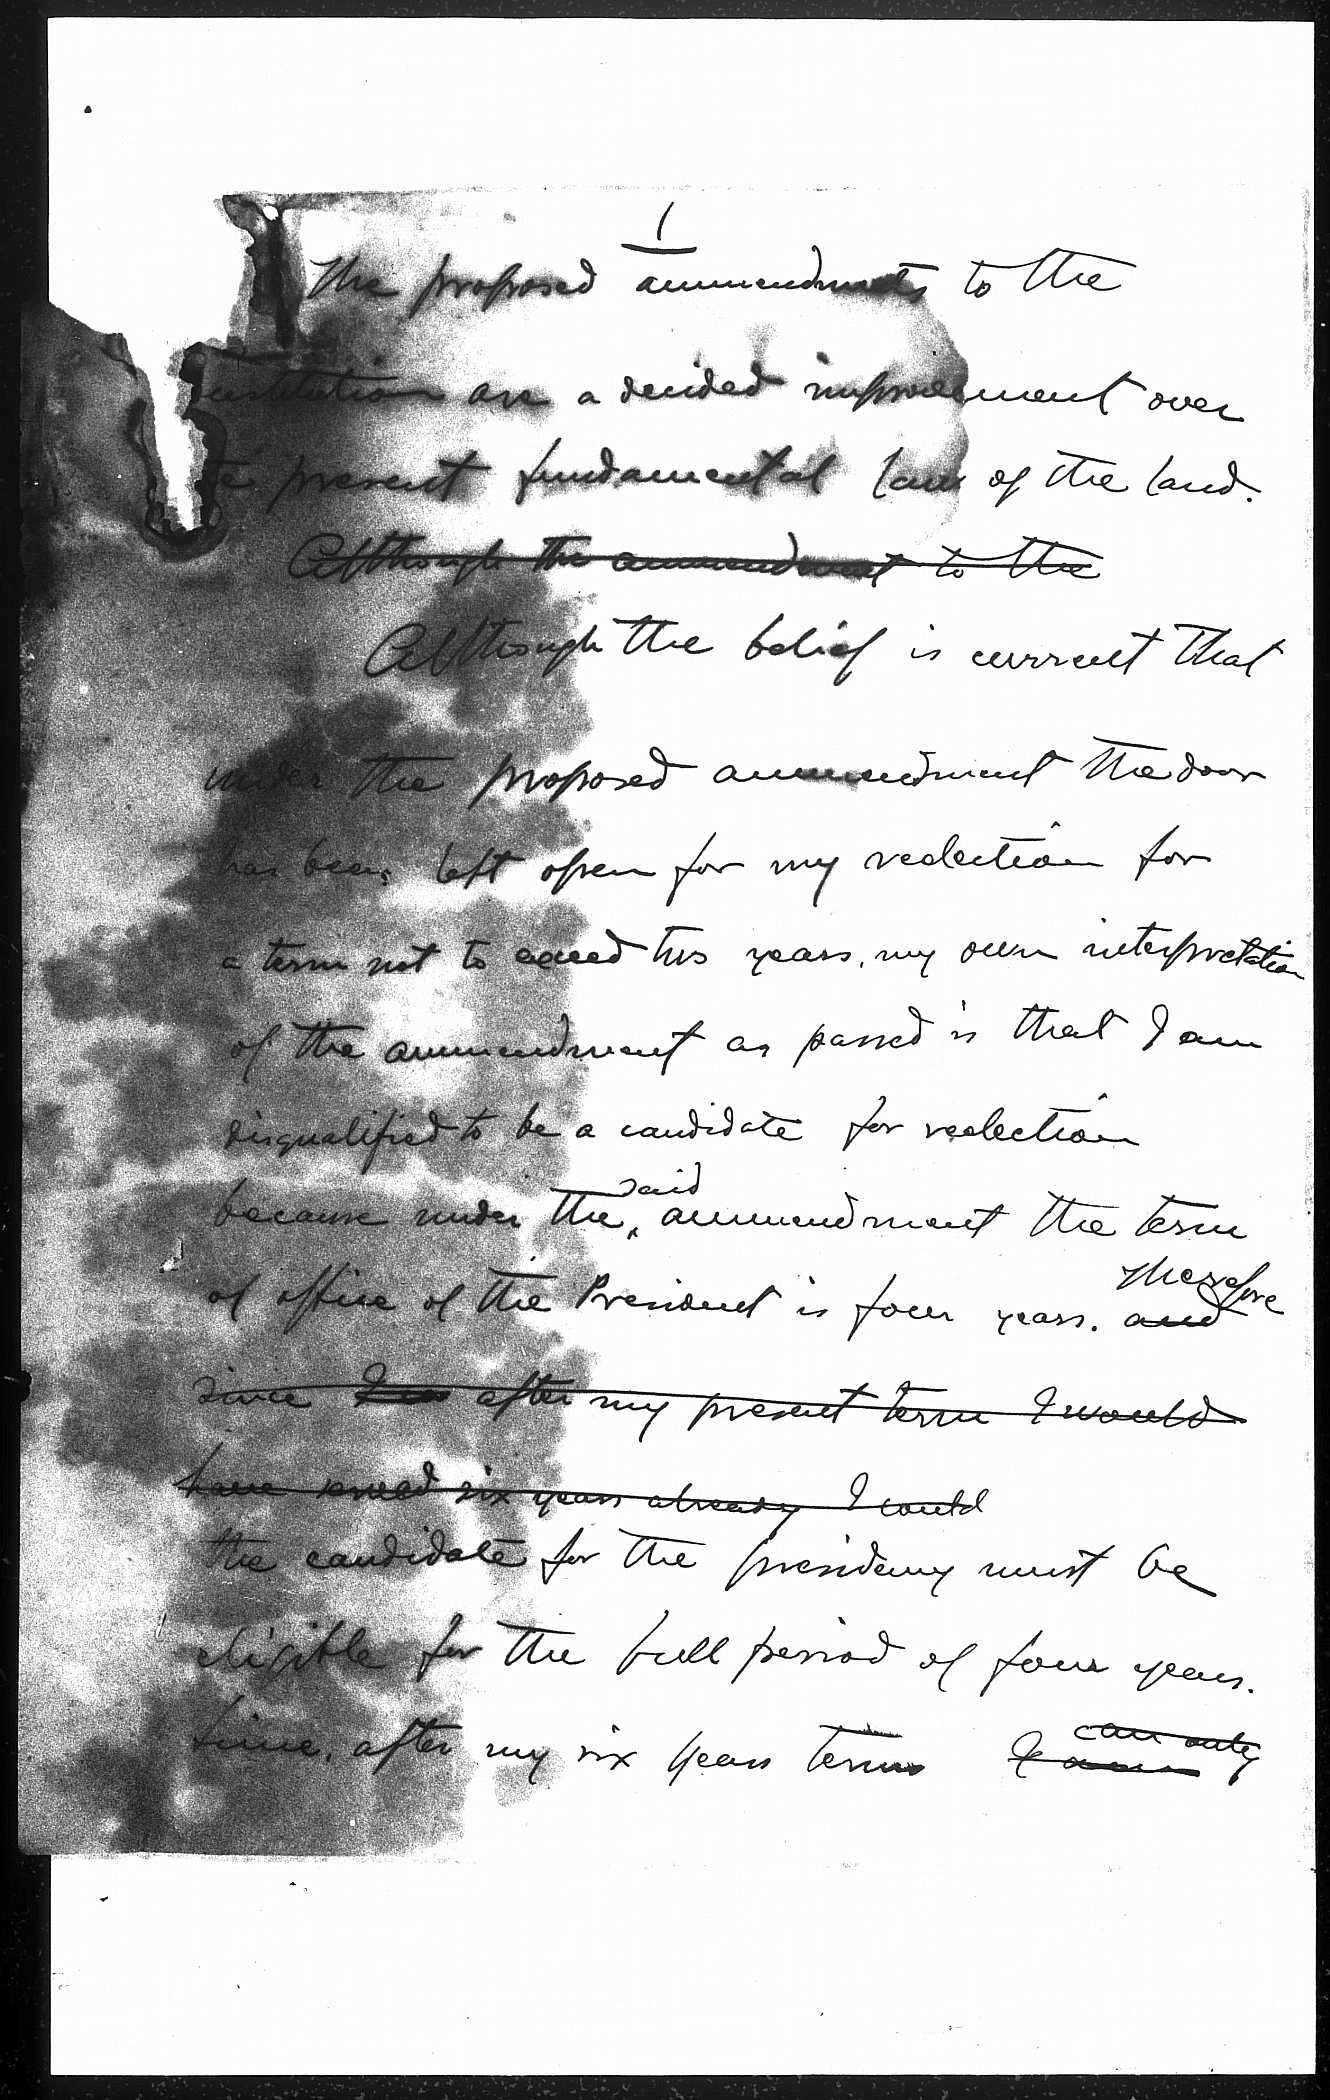 1
The proposed ammendments to the
nstitution are a decided improvement over
e present fundamental law of the land.
Although the ammendment to the
Although the belief is current that
under the proposed ammendment the door
has been left open for my reelection for
a term not to exceed two years, my own interpretation
of the ammendment as passed is that I am
disqualified to be a candidate for reelection
said
because under the ammendment the term
Therefore
of office of the President is four years. and
since after my present term I would
have served six years already I could
the candidate for the presidency must be
eligible for the full period of four years.
Since, after my six years term
can only
I am